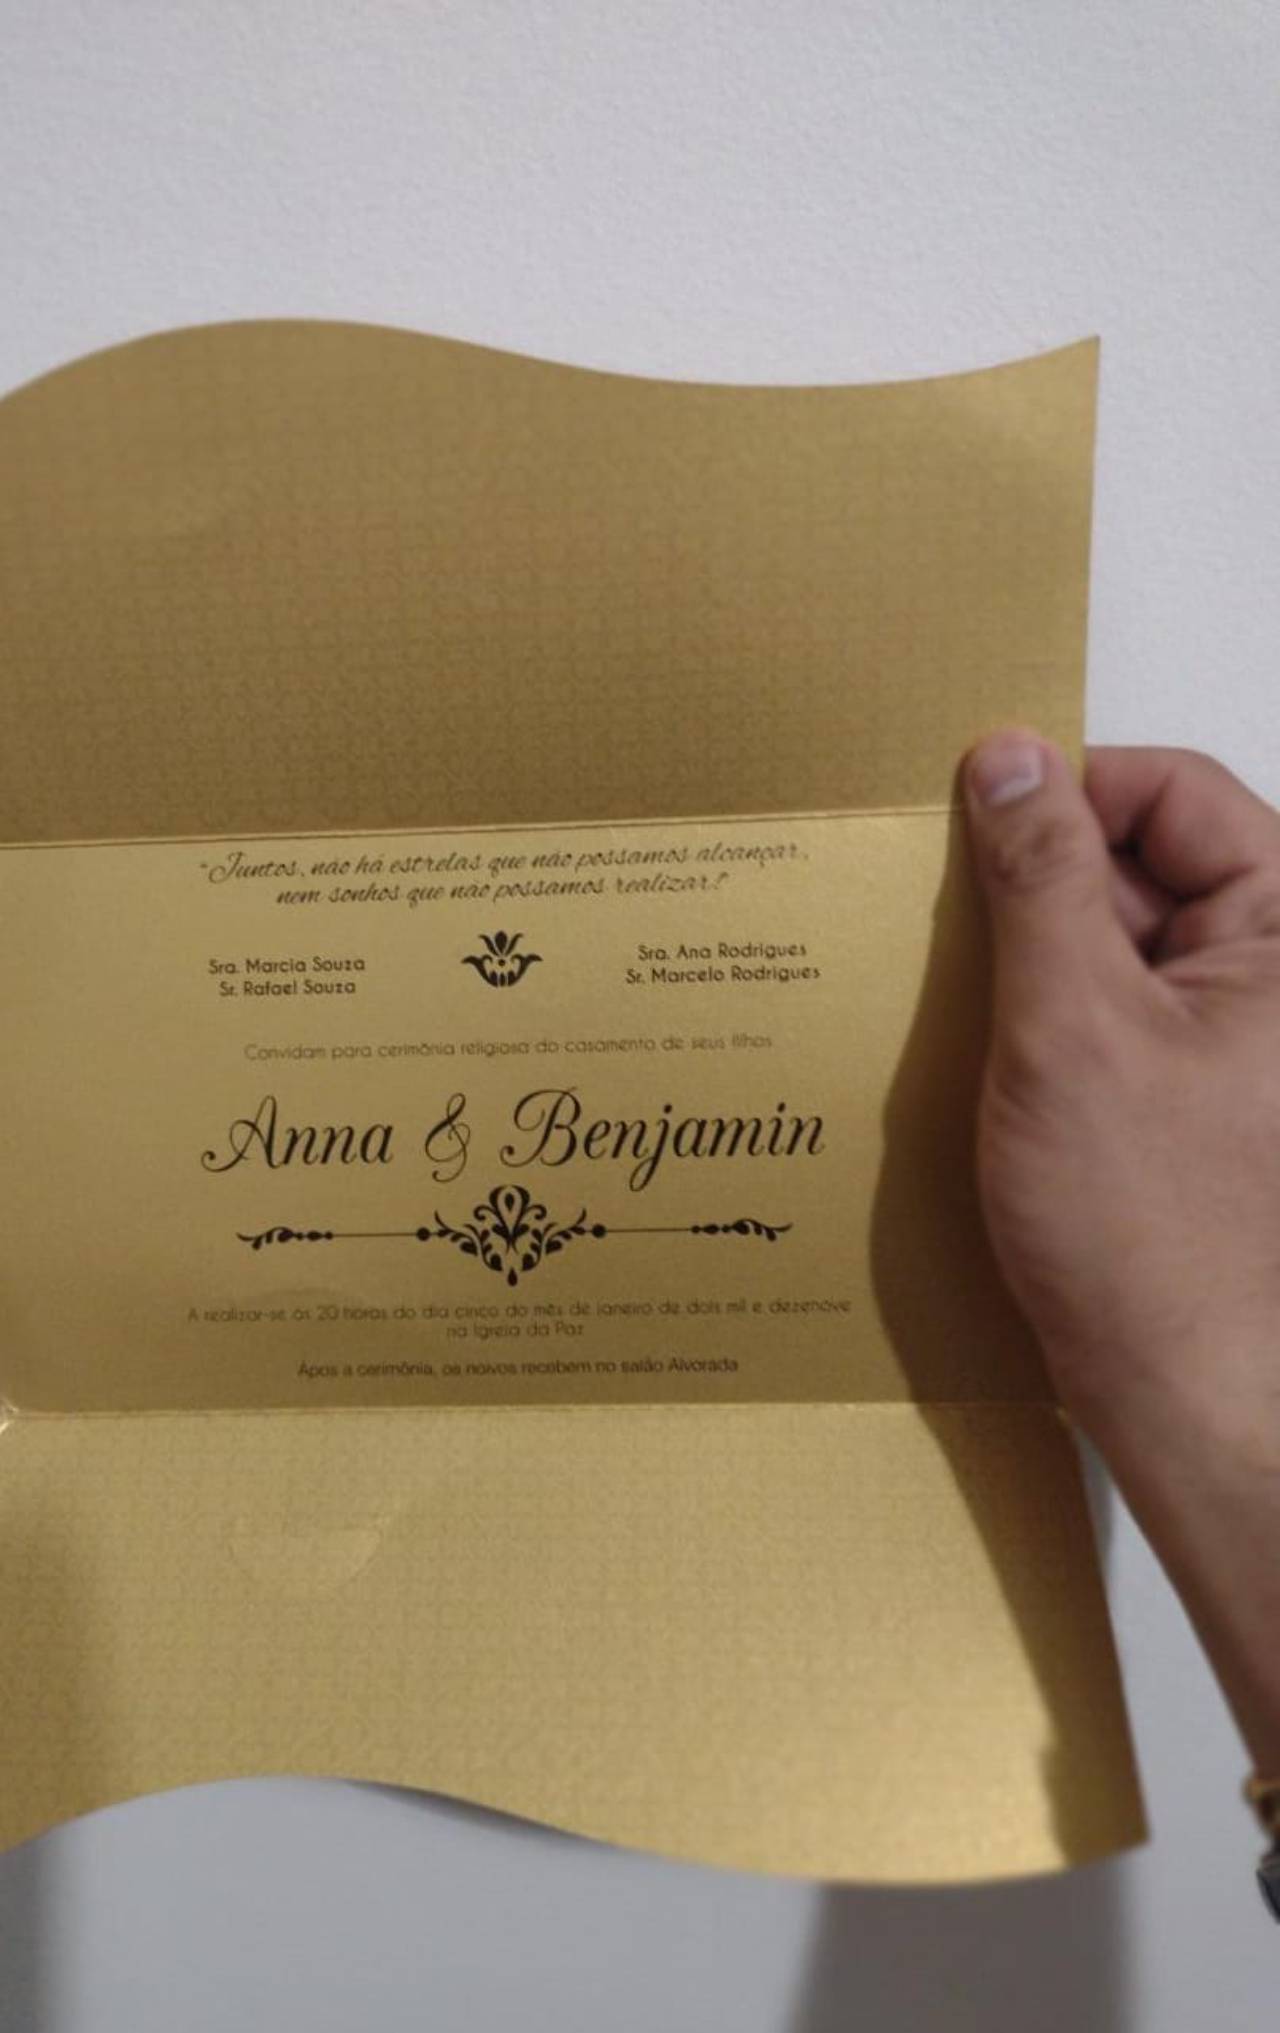 "Juntos, não há estrelas que não possamos alcançar,
nem sonhos que não possamos realizar!"
Sra. Marcia Souza
Sr. Rafael Souza
Sra. Ana Rodrigues
Sr. Marcelo Rodrigues
Convidam para cerimônia religiosa do casamento de seus filhos
Anna & Benjamin
A realizar-se às 20 horas do dia cinco do mês de janeiro de dois mil e dezenove
na Igreja da Paz
Após a cerimônia, os noivos recebem no salão Alvorada